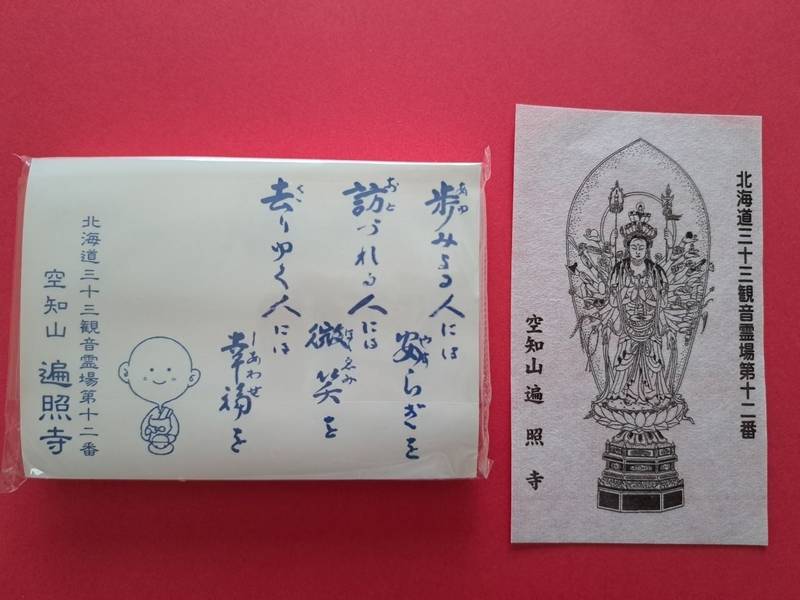 歩みよる人には
安らぎを
訪づれる人には
微笑を
去りゆく人には
幸福を
北海道三十三観音霊場第十二番
空知山 遍照寺
北海道三十三観音霊場第十二番
空知山遍照寺